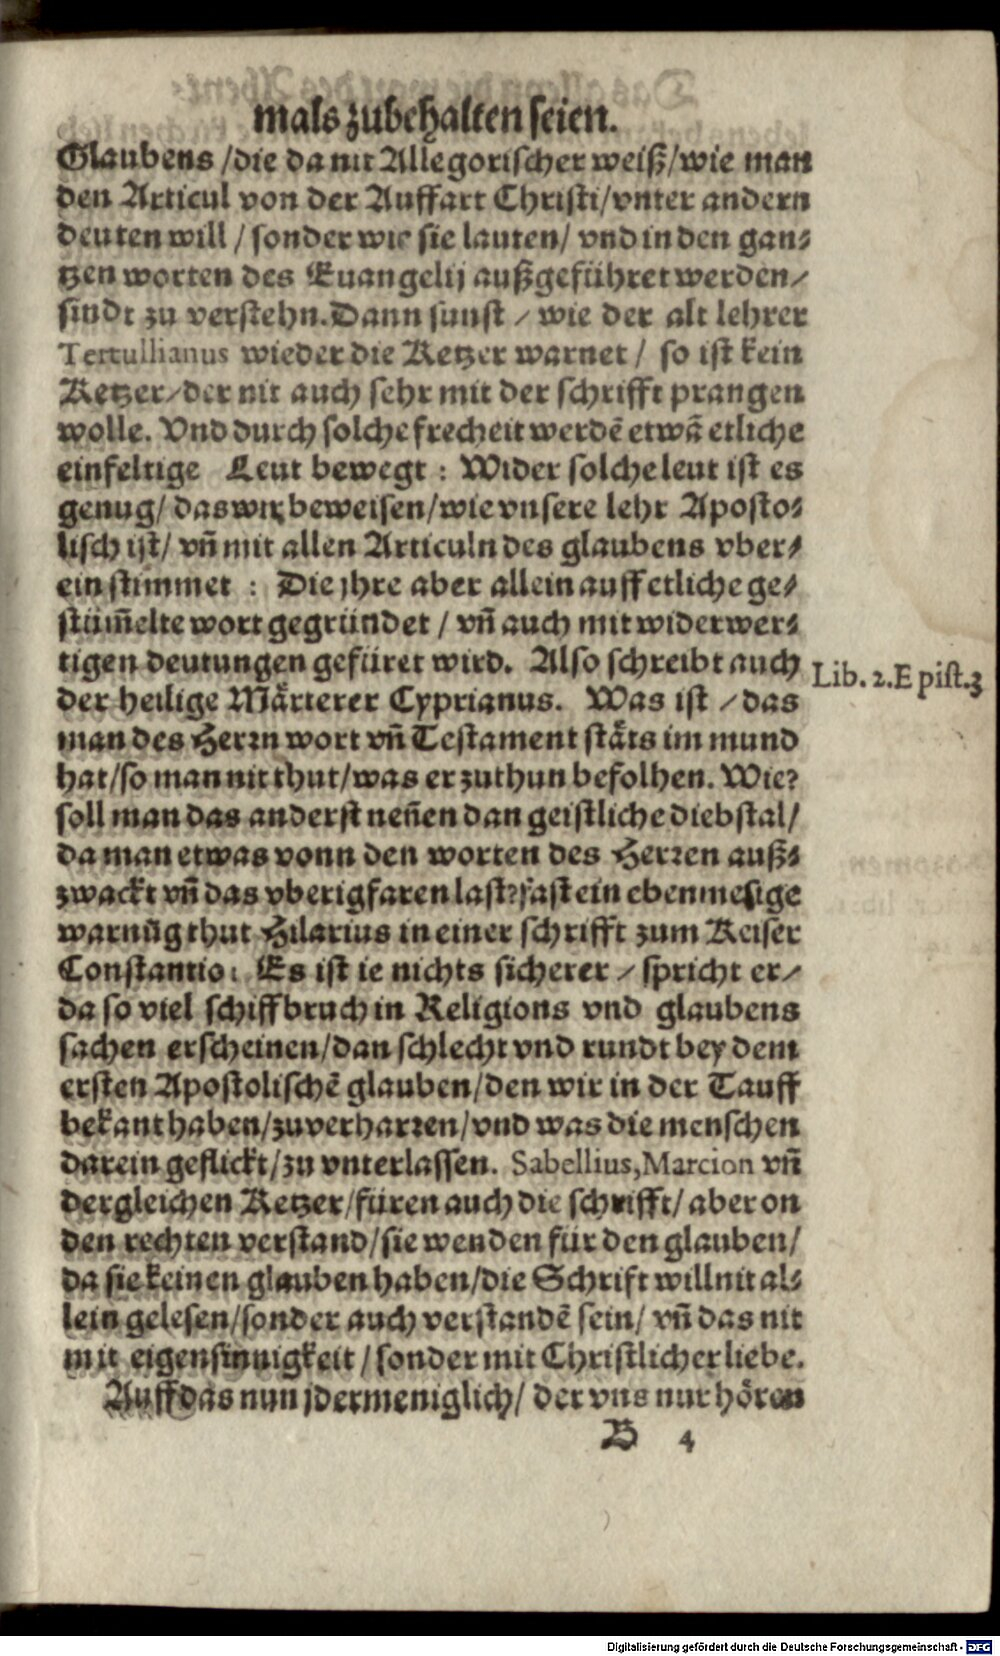 mals zubehalten seien.
Glaubens /die da nit Allegorischer weiß/wie man
den Articul von der Auffart Christi/vnter andern
deuten will / sonder wie sie lauten/ vnd in den gan⸗
tzen worten des Euangelij außgeführet werden/
sindt zu verstehn. Dann sunst / wie der alt lehrer
Tertullianus wieder die Ketzer warnet / so ist kein
Ketzer/der nit auch sehr mit der schrifft prangen
wolle. Vnd durch solche frecheit werdē etwā etliche
einfeltige Leut bewegt : Wider solche leut ist es
genug/ das wir beweisen/wie vnsere lehr Aposto⸗
lisch ist/ vn̄ mit allen Articuln des glaubens vber⸗
ein stimmet : Die jhre aber allein auff etliche ge⸗
stüm̄elte wort gegründet / vn̄ auch mit widerwer⸗
tigen deutungen gefüret wird. Also schreibt auch
Lib. 2. Epist. 3
der heilige Märterer Cyprianus. Was ist / das
man des Herrn wort vn̄ Testament stäts im mund
hat/so man nit thut/was er zuthun befolhen. Wie?
soll man das anderst nen̄en dan geistliche diebstal/
da man etwas vonn den worten des Herren auß⸗
zwackt vn̄ das vberig faren last? fast ein ebenmesige
warnūg thut Hilarius in einer schrifft zum Keiser
Constantio: Es ist ie nichts sicherer / spricht er/
da so viel schiffbruch in Religions vnd glaubens
sachen erscheinen/dan schlecht vnd rundt bey dem
ersten Apostolischē glauben/den wir in der Tauff
bekant haben/zuverharren/vnd was die menschen
darein geflickt/zu vnterlassen. Sabellius, Marcion vn̄
dergleichen Ketzer/füren auch die schrifft/ aber on
den rechten verstand/sie wenden für den glauben/
da sie keinen glauben haben/die Schrift will nit al⸗
lein gelesen/sonder auch verstandē sein/ vn̄ das nit
mit eigensinnigkeit / sonder mit Christlicher liebe.
Auff das nun jdermeniglich/ der vns nur hören
B 4
Digitalisierung gefördert durch die Deutsche Forschungsgemeinschaft - DFG